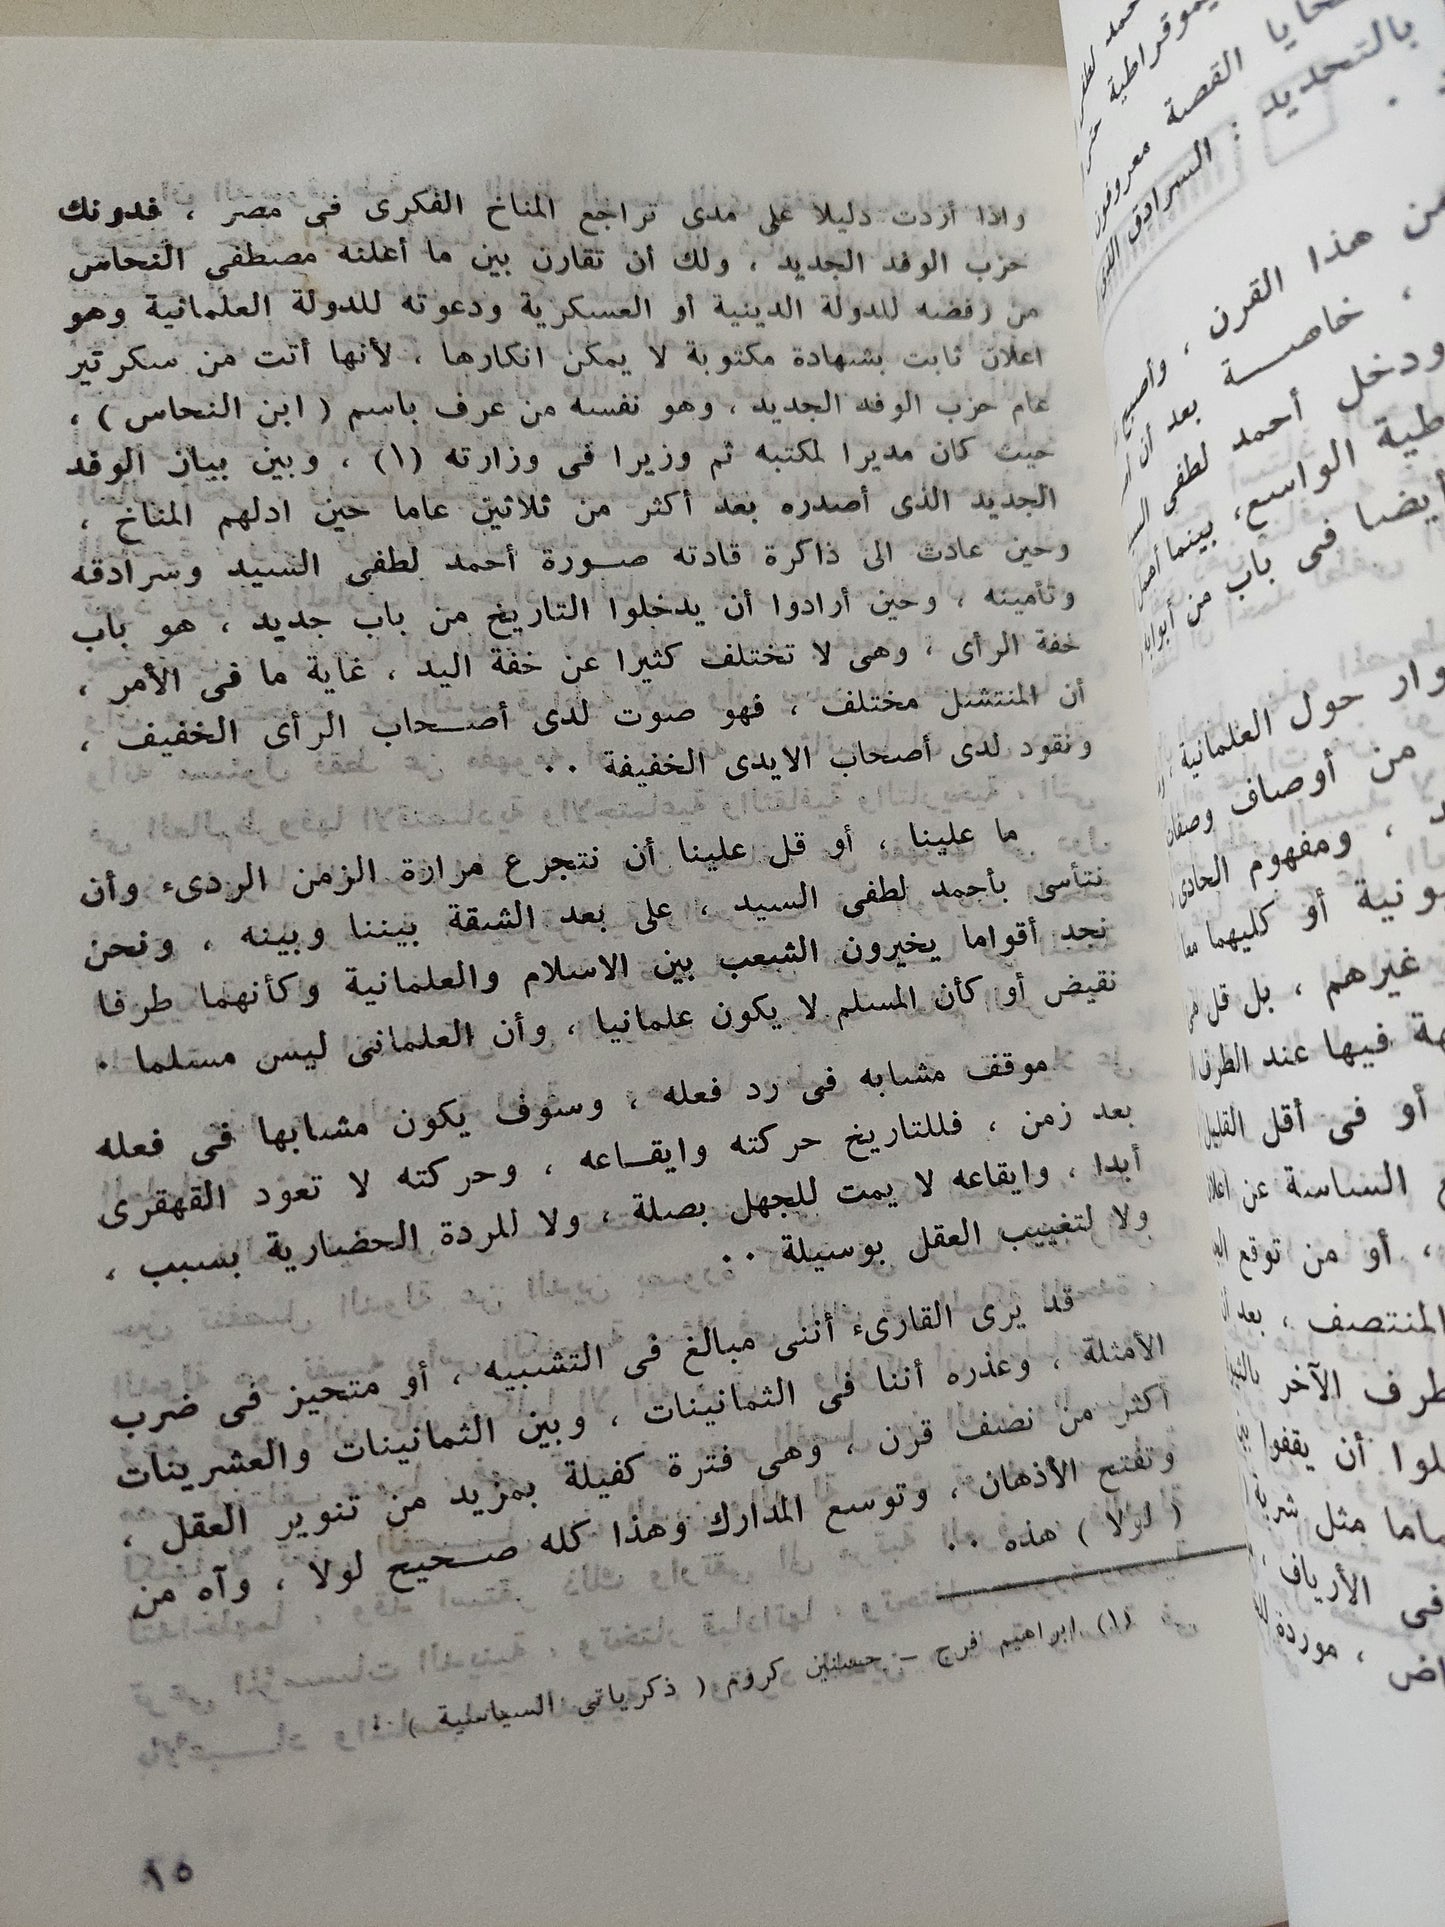 واذا أردت دليلا على مدى تراجع المناخ الفكرى فى مصر ، فدونك
حزب الوفد الجديد ، ولك أن تقارن بين ما أعلنه مصطفى النحاس
من رفضه للدولة الدينية أو العسكرية ودعوته للدولة العلمانية وهو
اعلان ثابت بشهادة مكتوبة لا يمكن انكارها ، لأنها أتت من سكرتير
عام حزب الوفد الجديد ، وهو نفسه من عرف باسم ( ابن النحاس ) ،
حيث كان مديرا لمكتبه ثم وزيرا فى وزارته (١) ، وبين بيان الوفد
الجديد الذى أصدره بعد أكثر من ثلاثين عاما حين ادلهم المناخ ،
وحين عادت الى ذاكرة قادته صورة أحمد لطفى السيد وسرادقه
وتأمينه ، وحين أرادوا أن يدخلوا التاريخ من باب جديد ، هو باب
خفة الرأى ، وهى لا تختلف كثيرا عن خفة اليد ، غاية ما فى الأمر ،
أن المنتشل مختلف ، فهو صوت لدى أصحاب الرأى الخفيف ،
ونقود لدى أصحاب الايدى الخفيفة ٠٠
ما علينا ، أو قل علينا أن نتجرع مرارة الزمن الردىء وأن
نتأسى بأحمد لطفى السيد ، على بعد الشقة بيننا وبينه ، ونحن
نجد أقواما يخيرون الشعب بين الاسلام والعلمانية وكأنهما طرفا
نقيض أو كأن المسلم لا يكون علمانيا ، وأن العلمانى ليس مسلما ٠
موقف مشابه فى رد فعله ، وسوف يكون مشابها فى فعله
بعد زمن ، فللتاريخ حركته وايقاعه ، وحركته لا تعود القهقرى
أبدا ، وايقاعه لا يمت للجهل بصلة ، ولا للردة الحضارية بسبب ،
ولا لتغييب العقل بوسيلة ٠٠
قد يرى القارىء أننى مبالغ فى التشبيه ، أو متحيز فى ضرب
الأمثلة ، وعذره أننا فى الثمانينات ، وبين الثمانينات والعشرينات
أكثر من نصف قرن ، وهى فترة كفيلة بمزيد من تنوير العقل ،
وتفتح الأذهان ، وتوسع المدارك وهذا كله صحيح لولا ، وآه من
( لولا ) هذه ٠٠
(١) ابراهيم فرج - حسنين كروم ( ذكرياتي السياسية ) ٠
١٥
القصة معروفون
بالتحديد : السرادق الذى
من هذا القرن ، وأصبح
، خاصة بعد أن
ودخل أحمد لطفى
الواسع، بينما
أيضا فى باب من
حول العلمانية ،
من أوصاف
، ومفهوم
أو كليهما معا
غيرهم ، بل قل
فيها عند الطرف
أو فى أقل القليل
السياسة عن
، أو من توقع
المنتصف ، بعد
الآخر
أن يقفوا
مثل
فى الأرياف
، موردة